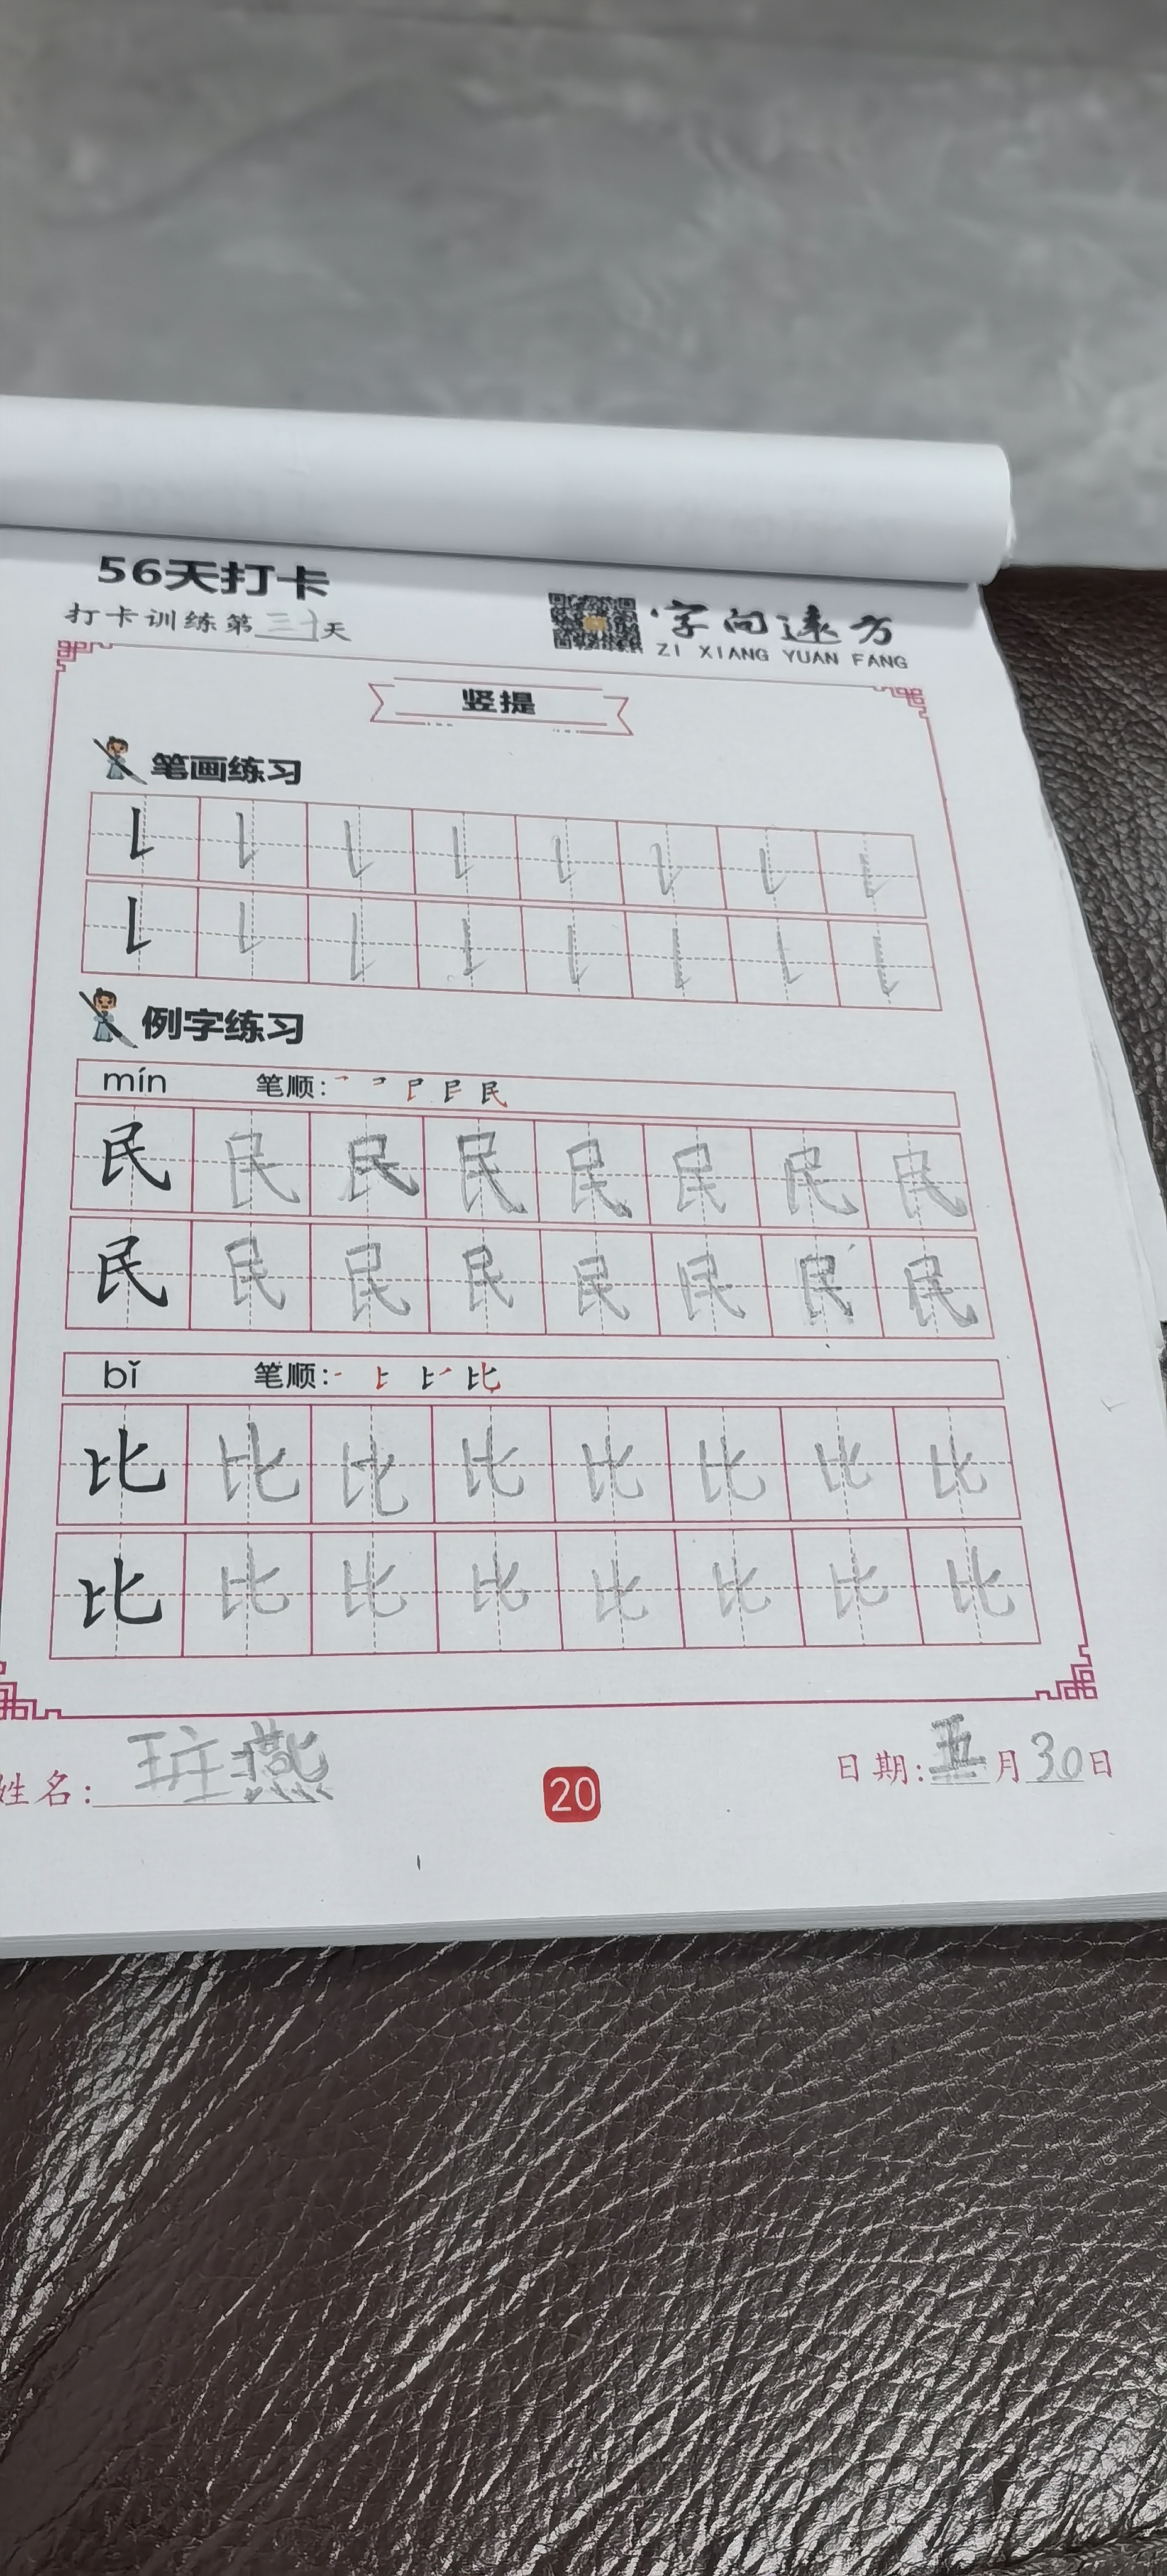 56天打卡
打卡训练第三十天
字向远方
ZI XIANG YUAN FANG
竖提
笔画练习
例字练习
mín 笔顺:
民 民 民 民 民 民 民 民
民 民 民 民 民 民 民 民
bǐ 笔顺: 比
比 比 比 比 比 比 比 比
比 比 比 比 比 比 比 比
姓名: 燕
20
日期: 五月30日